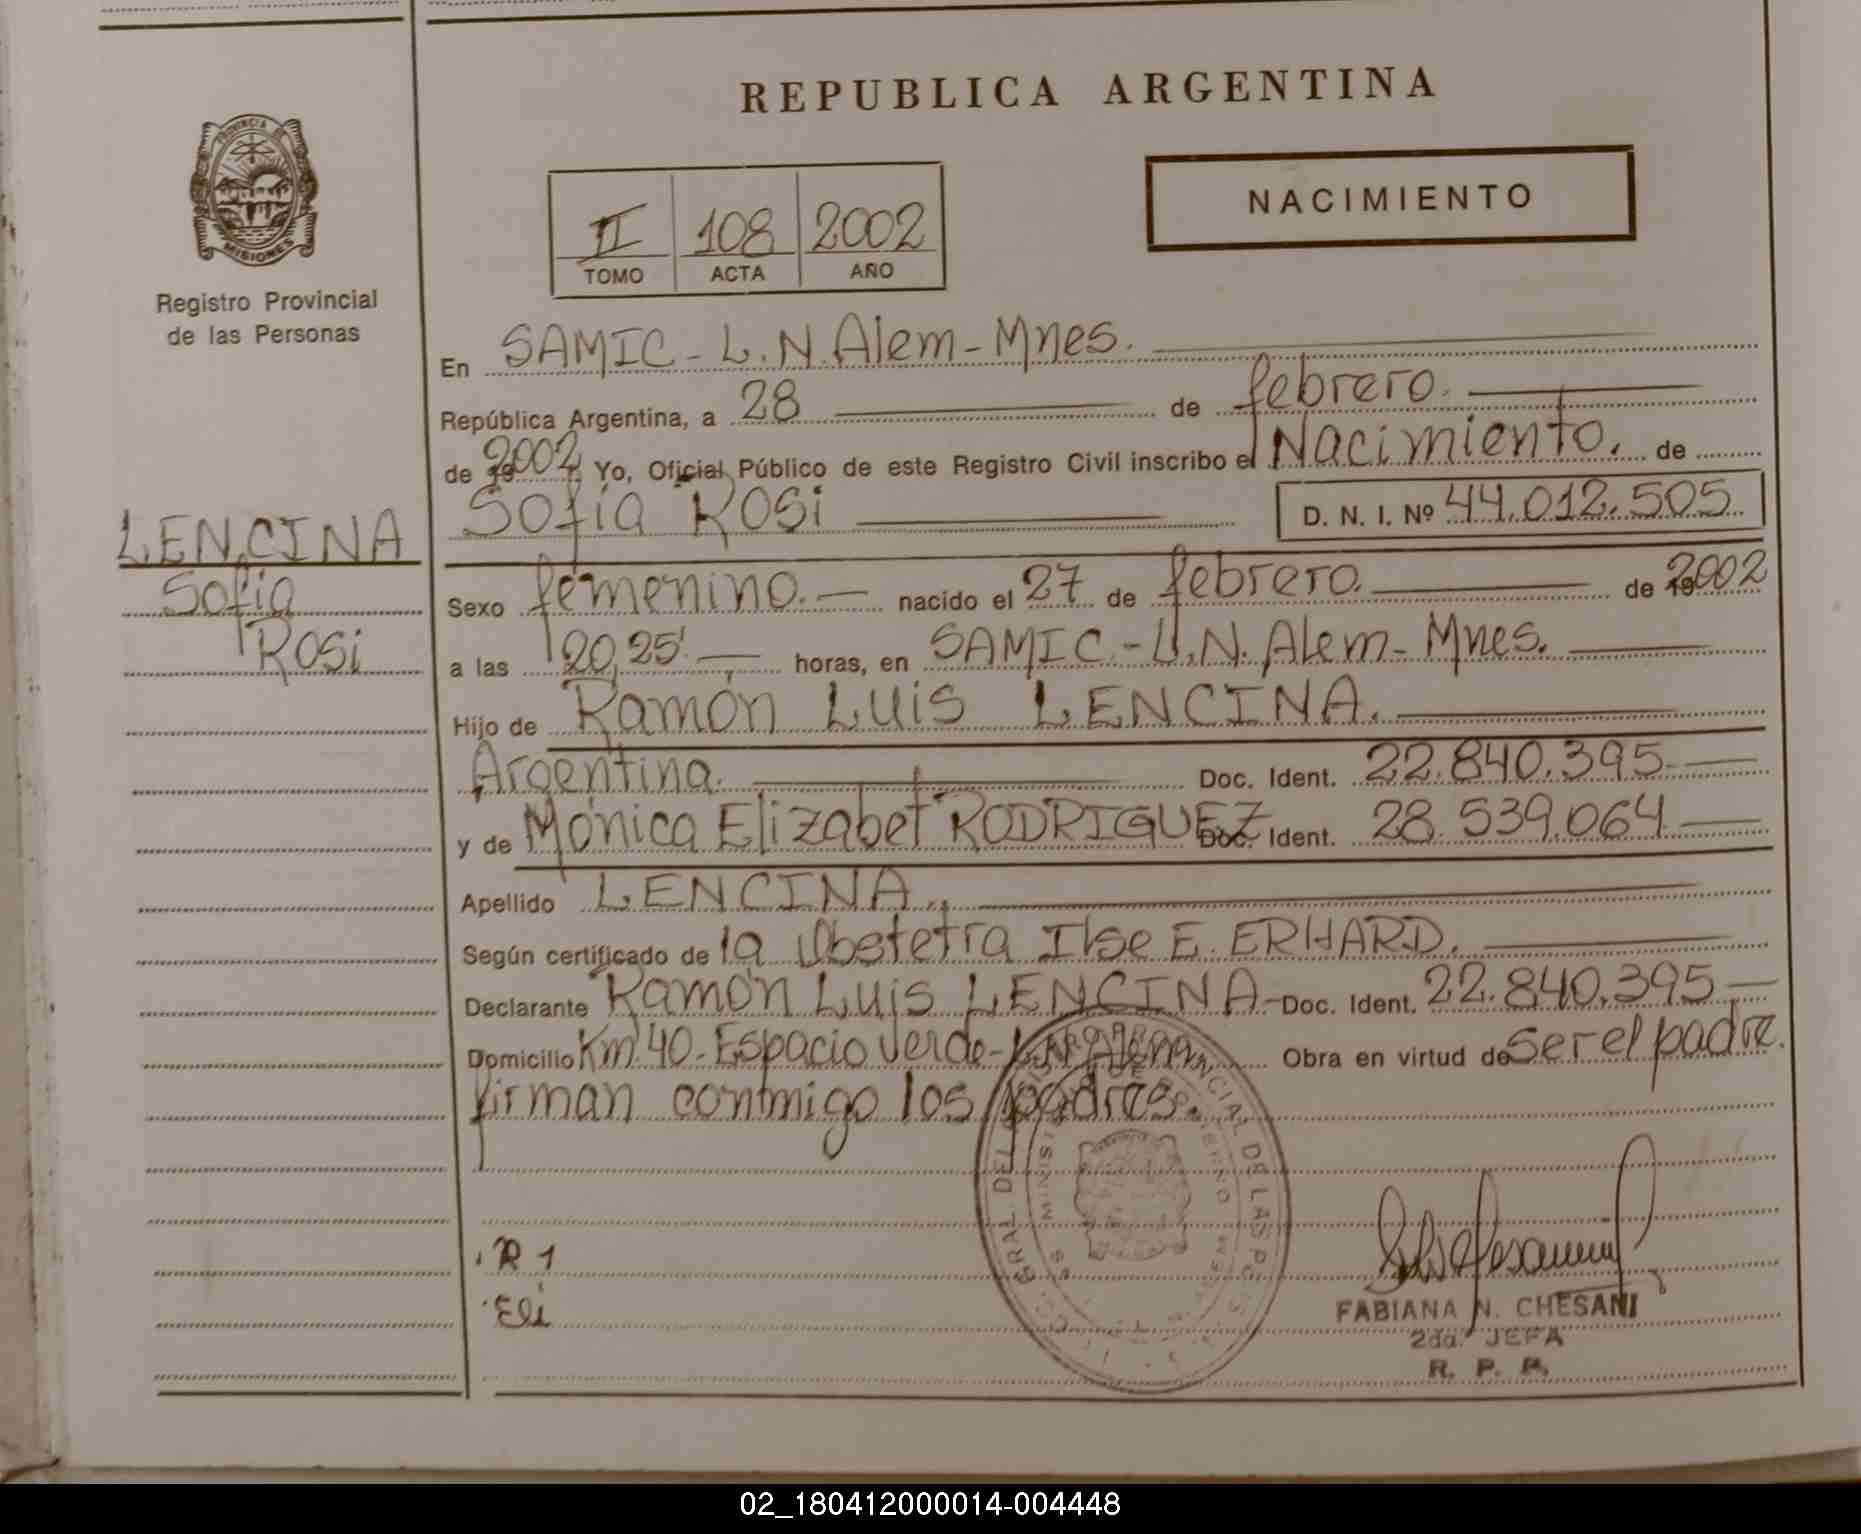 REPUBLICA ARGENTINA
PROVINCIA DE
MISIONES
Registro Provincial
de las Personas
NACIMIENTO
II 108 2002
TOMO ACTA AÑO
En SAMIC - L.N. Alem - Mnes.
República Argentina, a 28 de febrero.
de 2002 Yo, Oficial Público de este Registro Civil inscribo el Nacimiento. de
Sofía Rosi D. N. I. Nº 44.012.505
LENCINA
Sofía
Rosi
Sexo femenino. nacido el 27 de febrero. de 2002
a las 20,25' horas, en SAMIC - L.N. Alem - Mnes.
Hijo de Ramón Luis LENCINA.
Argentina. Doc. Ident. 22.840.395
y de Mónica Elizabet RODRIGUEZ Doc. Ident. 28.539.064
Apellido LENCINA.
Según certificado de la Obstetra Ilse E. ERHARD.
Declarante Ramón Luis LENCINA - Doc. Ident. 22.840.395
Domicilio Km. 40 - Espacio Verde - L.N. Alem. Obra en virtud de ser el padre.
firman conmigo los padres.
R 1
Eli
FABIANA N. CHESANI
2da. JEFA
R. P. P.
02_180412000014-004448